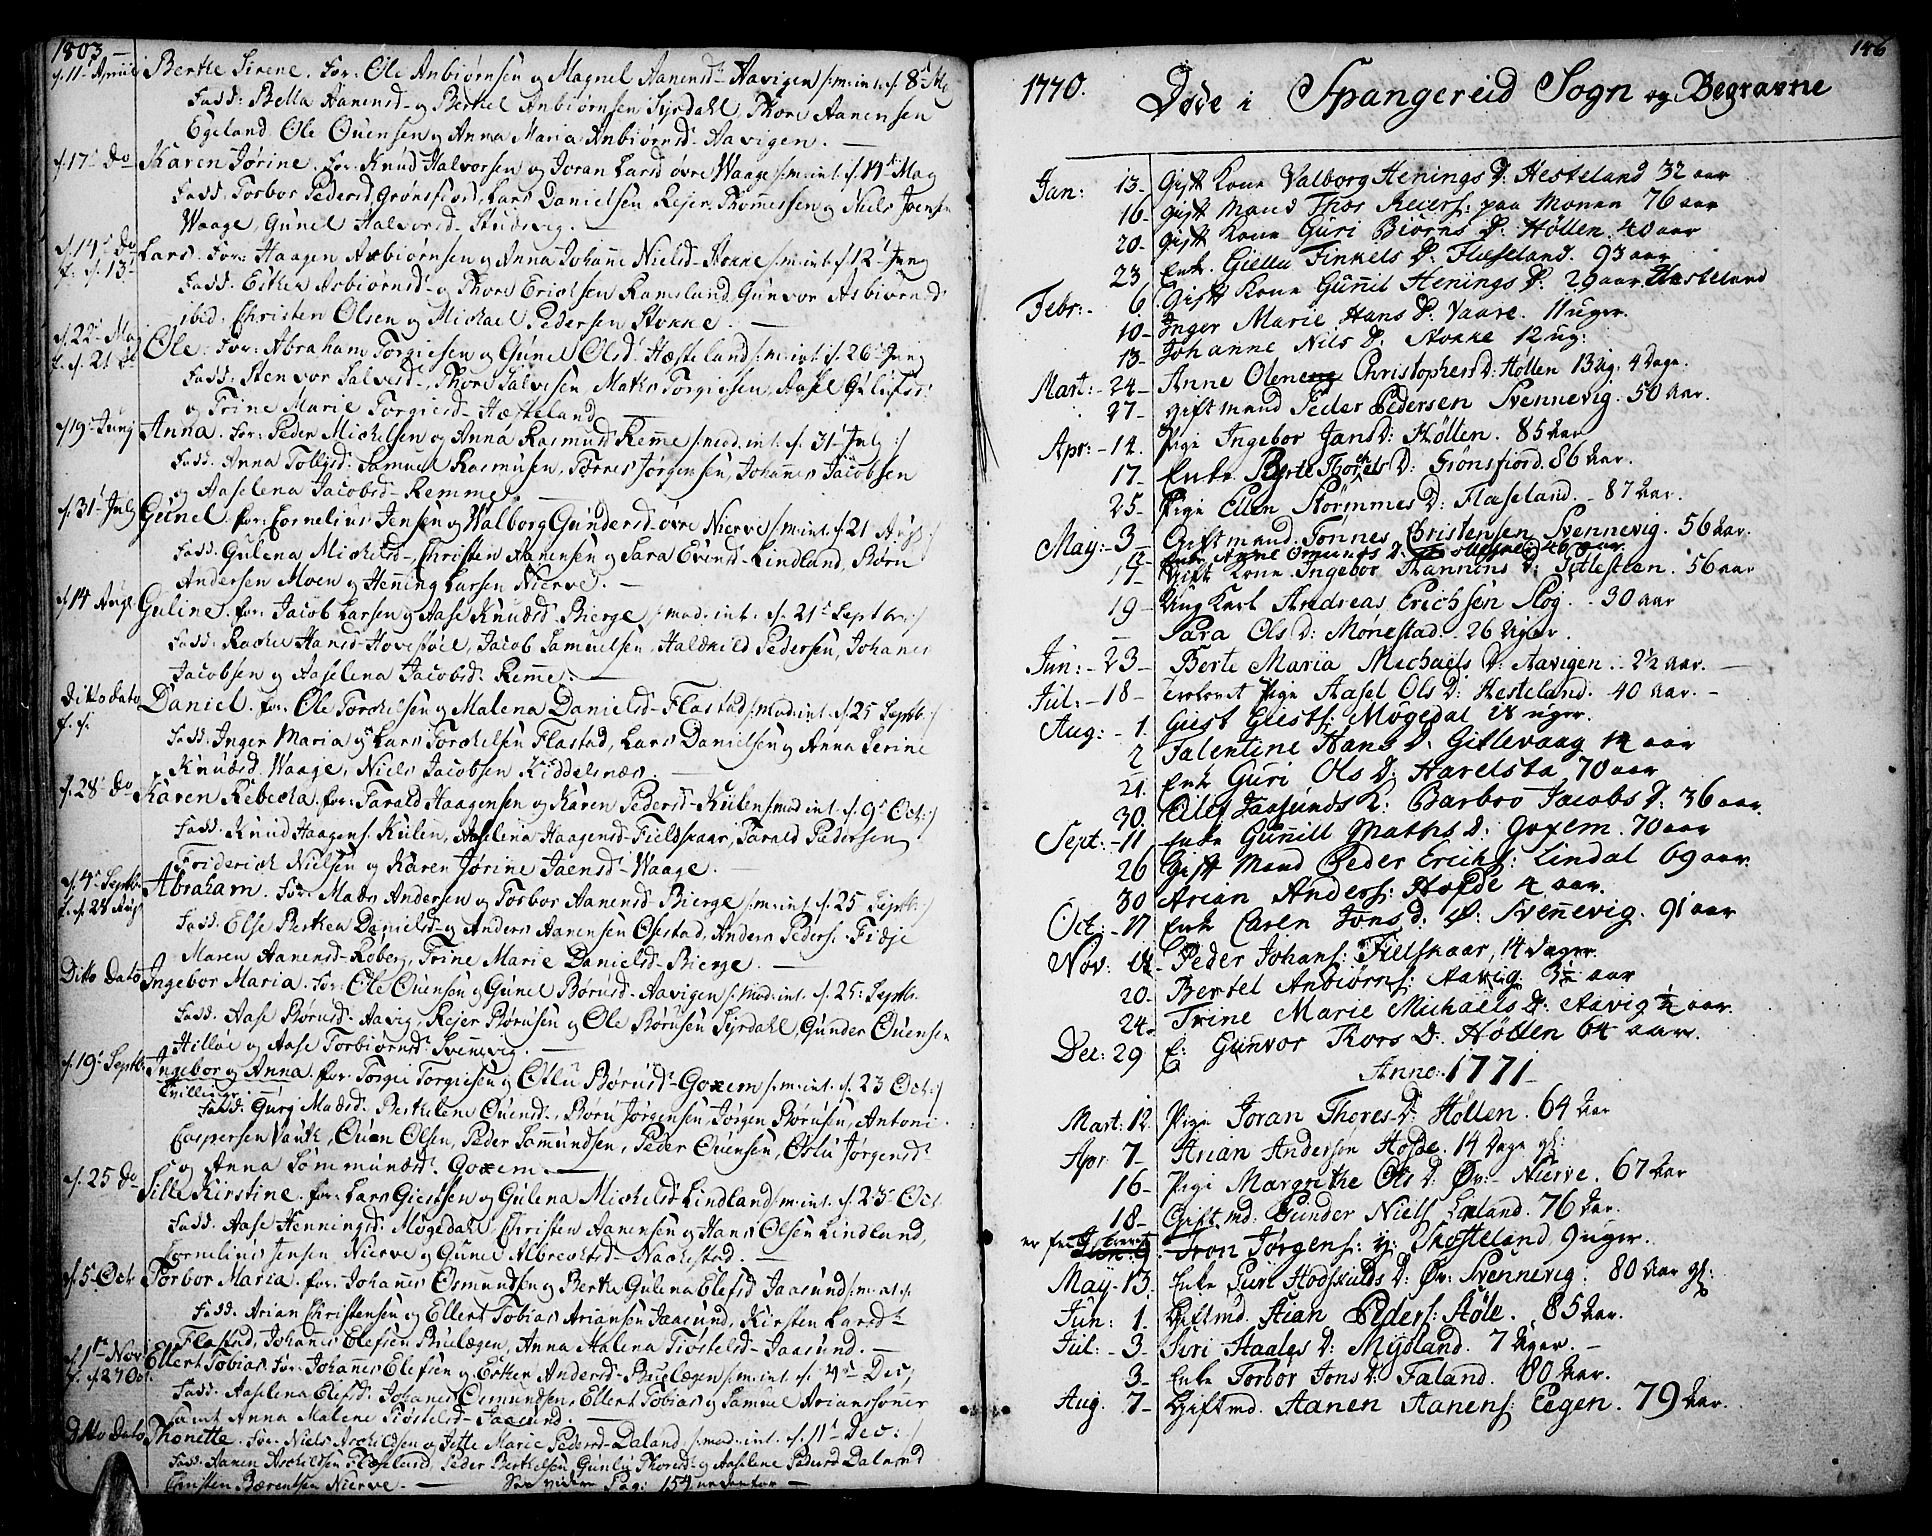 1803 –
s. 11t Apriil Berthe Serene. For: Ole Anbiørnsen og Magnel Aanensd- Aavigen /: m: int. s. 8d
Fadd: Bella Aanensd- og Berthel Anbiørnsen Syrdahl, Thore Aanensen
Egeland. Ole Ouensen og Anna Maria Anbiørnsd- Aavigen. –
s. 17t do Karen Jørine. For: Knud Halvorsen og Joran Larsd øvre Waage /: m: int. s. 14t Mag
Fadd: Torbor Pedersd Grønsfiord, Lars Danielsen, Rejer Thommessen og Niels Joensen
Waage, Gunel Halvorsd- Studevig. –
s. 14t do Lars. For: Haagen Asbiørnsen og Anna Johane Nielsd- Stokke /: m: int. s 12t Jung
f. s. 13t
Fadd: Esther Asbiørnsd- og Thore Erichsen Rameland, Gunvor Asbiørnsd
ibid. Christen Olsen og Michael Pedersen Stokke. –
s. 22t Mag Ole. For: Abraham Torgiesen og Gunel Olsd. Hæsteland /: m: int. s. 26t Jung
f. s. 21 do
Fadd: Stenvor Salvesd-, Thore Salvesen, Mathis Torgiesen, Aasel
og Trine Marie Torgiesd- Hæsteland –
s 19t Jung Anna. For: Peder Michelsen og Anna Rasmusd Remme /: mod. int. s. 31t Julg :/
Fadd: Anna Tollisd. Samuel Rasmusen, Tørres Jørgensen, Johanes Jacobsen
og Aaselena Jacobsd- Remme –
s. 31t Julg Gunel. for: Cornelius Jensen og Walborg Gundersd- øvre Nierve /: m: int. s. 21 Aug :/
Fadd: Gulena Michelsd-, Christen Aanensen og Sara Evensd- Lindland, Børn
Andersen Moen og Henning Larsen Nierve. –
s. 14 Augt Guline. for: Jacob Larsen og Aase Knudsd. Bierge /: mod. int. s. 21t Septbr: :/
Fadd: Rachel Hansd- Hovestøel, Jacob Samuelsen, Haldkild Pedersen, Johanes
Jacobsen og Aaselena Jacobsd: Remme. –
Ditto dato Daniel. for: Ole Torchelsen og Malena Danielsd- Flastad /: mod: int. s. 25 Septb: :/
f. s.
Fadd: Inger Maria og Lars Torchelsen Flastad, Lars Danielsen og Anna Serine
Knudsd. Waage, Niels Jacobsen Kiddelsnæs –
s. 28t do Karen Rebecka. for: Tarald Haagensen og Karen Pedersd- Kulen /: mod int. s. 9t Oct: :/
Fadd: Knud Haagens. Kulen, Aaselena Haagensd- Fieldskaar, Tarald Pedersen
Friderich Nielsen og Karen Jørine Jaensd- Waage. –
s. 4t Septb. Abraham. For: Mads Andersen og Torbor Aanensd- Bierge /: m: int. s. 25 Septb: :/
f. s. 28 Aug
Fadd: Else Berthea Danielsd- og Anders Aanensen Ofstad, Anders Peders: Fidje
Maren Aanensd- Roberg, Trine Marie Danielsd- Bierge. –
Ditto Dato Ingebor Maria. For: Ole Ouensen og Gunel Børusd- Aavigen /: mod. int. s. 25t Septb:
Fadd: Aase Børusd- Aavig, Rejer Børusen og Ole Børusen Syrdahl, Gunder Ouensen
Hilloe og Aase Torbiørnsd. Svennevig. –
s. 19t Septb: Ingebor og Anna. for: Torgie Torgiesen og Ostlu Børusd- Goxem /: m: int. s. 23 Oct: :/
Tvillinger
Fadd: Gurj Madsd. Berthelene Ouensd-, Børu Jørgensen, Jørgen Børusen, Antoni
Caspersen Vatne, Ouen Olsen, Peder Sammundsen, Peder Ouensen, Ostlu Jørgensd
og Anna Sømmundsd. Goxem. –
s. 25 do Sille Kirstine. for: Lars Giestsen og Gulena Michelsd- Lindland /: m: int. s. 23t Oct
Fadd: Aase Henningsd. Møgedal, Christen Aanensen og Hans Olsen Lindland,
Cornelius Jensen Nierve og Gunel Albrechtsd- Naakestad. –
s. 5t Oct Torbor Maria. for: Johanes Osmundsen og Berthe Gulena Elefsd Jaasund /: m: int :/
Fadd: Arian Christensen og Ellert Tobias Ariansen Jaasund, Kirsten Larsd
Flastad, Johanes Elefsen Buelægen, Anna Malena Tiøstelsd- Jaasund. –
s. 1t Nov Ellert Tobias. For: Johanes Elefsen og Esther Andersd- Buelægen /: m: int. s. 4t Dec:
f. s. 27 Oct.
Fadd: Aaselena Elefsd. Johanes Osmundsen, Ellert Tobias og Samuel Arianssønner
samt Anna Malene Tiøstelsd- Jaasund. –
Ditto dato Thonette. For: Niels Archildsen og Jette Marie Pedersd- Daland /: mod: int. s. 11t Dec: :/
Fadd: Aanen Archildsen Flæseland, Peder Berthelsen, Gunlu Thoresd- og Aaselene Pedersd Daland
Christen Bærentsen Nierve. – See videre Pag: 154 nedenfor –
146
1770. Døde i Spangereid Sogn og Begravne
Jan: 13- Gift Kone Valborg Henings D: Hesteland 32 aar
16- gift Mand Thor Reiers: paa Monen 76 aar
20- gift Kone Guri Biørns D: Høllen. 40 aar
23 Enk. Giellu Finkels D: Flaseland. 93 aar
Febr: - 6 Gift Kone Gunnil Henings D: 29 aar. Hesteland
10- Inger Marie Hans D. Vaare. 11 uger.
13- Johanne Nils D: Stokke 12 ug:
Mart: - 24- Anne Olene Christophers D: Høllen 13 ug. 4 Dage.
27- gift mand Peder Pedersen Svennevig. 50 Aar.
Apr: - 14. Pige Ingebor Jans D: Høllen. 85 Aar
17- Enke Berte D: Grønsfiord. 86 Aar.
25- Pige Ellen Størmmes D: Flaseland. - 87 Aar.
May: - 3- Gift mand Tønnes Christensen Svennevig. 56 Aar.
Enke Anne Omunds D: 46 aar
17- Gift Kone Ingebor Hannens D: 56 aar
19- Ung Karl Andreas Erichsen Skog. - 30 aar
– Sara Ols D: Mønestad. 26 Uger.
Jun: - 23- Berte Mariia Michaels D: Aavigen. - 2½ aar. –
Jul: - 18- Trolovet Pige Aasel Ols D: Hesteland. 40 aar. –
Aug: - 1. Giest Giests: Møgedal 18 uger.
2 Talentine Hans D: Gitlevaag 12 aar
21. Enk Guri Ols D: Harelsta 70 aar
30. Ellef Jaasunds K: Barbro Jacobs D: 36 aar
Sept: - 11 Enke Gunnill Maths D: Goxem. 70 aar
26 Gift Mand Peder Erichs: Lindal 69 aar
30 Arian Anders: Hofde 4 aar.
Oct: - 17 Enke Caren Jons d: Ø: Svennevig. 91 aar
Nov: 14- Peder Johans: Fielskaar, 14 dager.
20- Bertel Anbiørns: Aavig 3½ aar
24- Trine Marie Michaels D: Aavig ½ aar.
Dec: 29 E: Gunvor Tors D. Høllen 64 aar.
Anno: 1771-
Mart: 12 Pige Joran Thores- D: Høllen. 64 Aar
Apr: 7- Arian Andersøn Hofde. 14 Dage gl:
16- Pige Margrethe Ols D: Øv: - Nierve. 67 Aar
18- Gift md. Gunder Niels Leland. 76 Aar.
Tron Jørgens: y: Skofteland 9 uger.
May - 13. Enke Siri Hodskulds D: Øv: Svennevig. 80 Aar gl:
Jun: 1. Giftmd. Stian Peders: Støle. 85 Aar.
Jul: - 3- Siri Staales D: Mydland. 7 Uger. –
3- Enke Torbor Jons D: Faland. 80 Aar.
Aug. 7- Giftmd. Aanen Aanens: Eegen. 79 Aar.